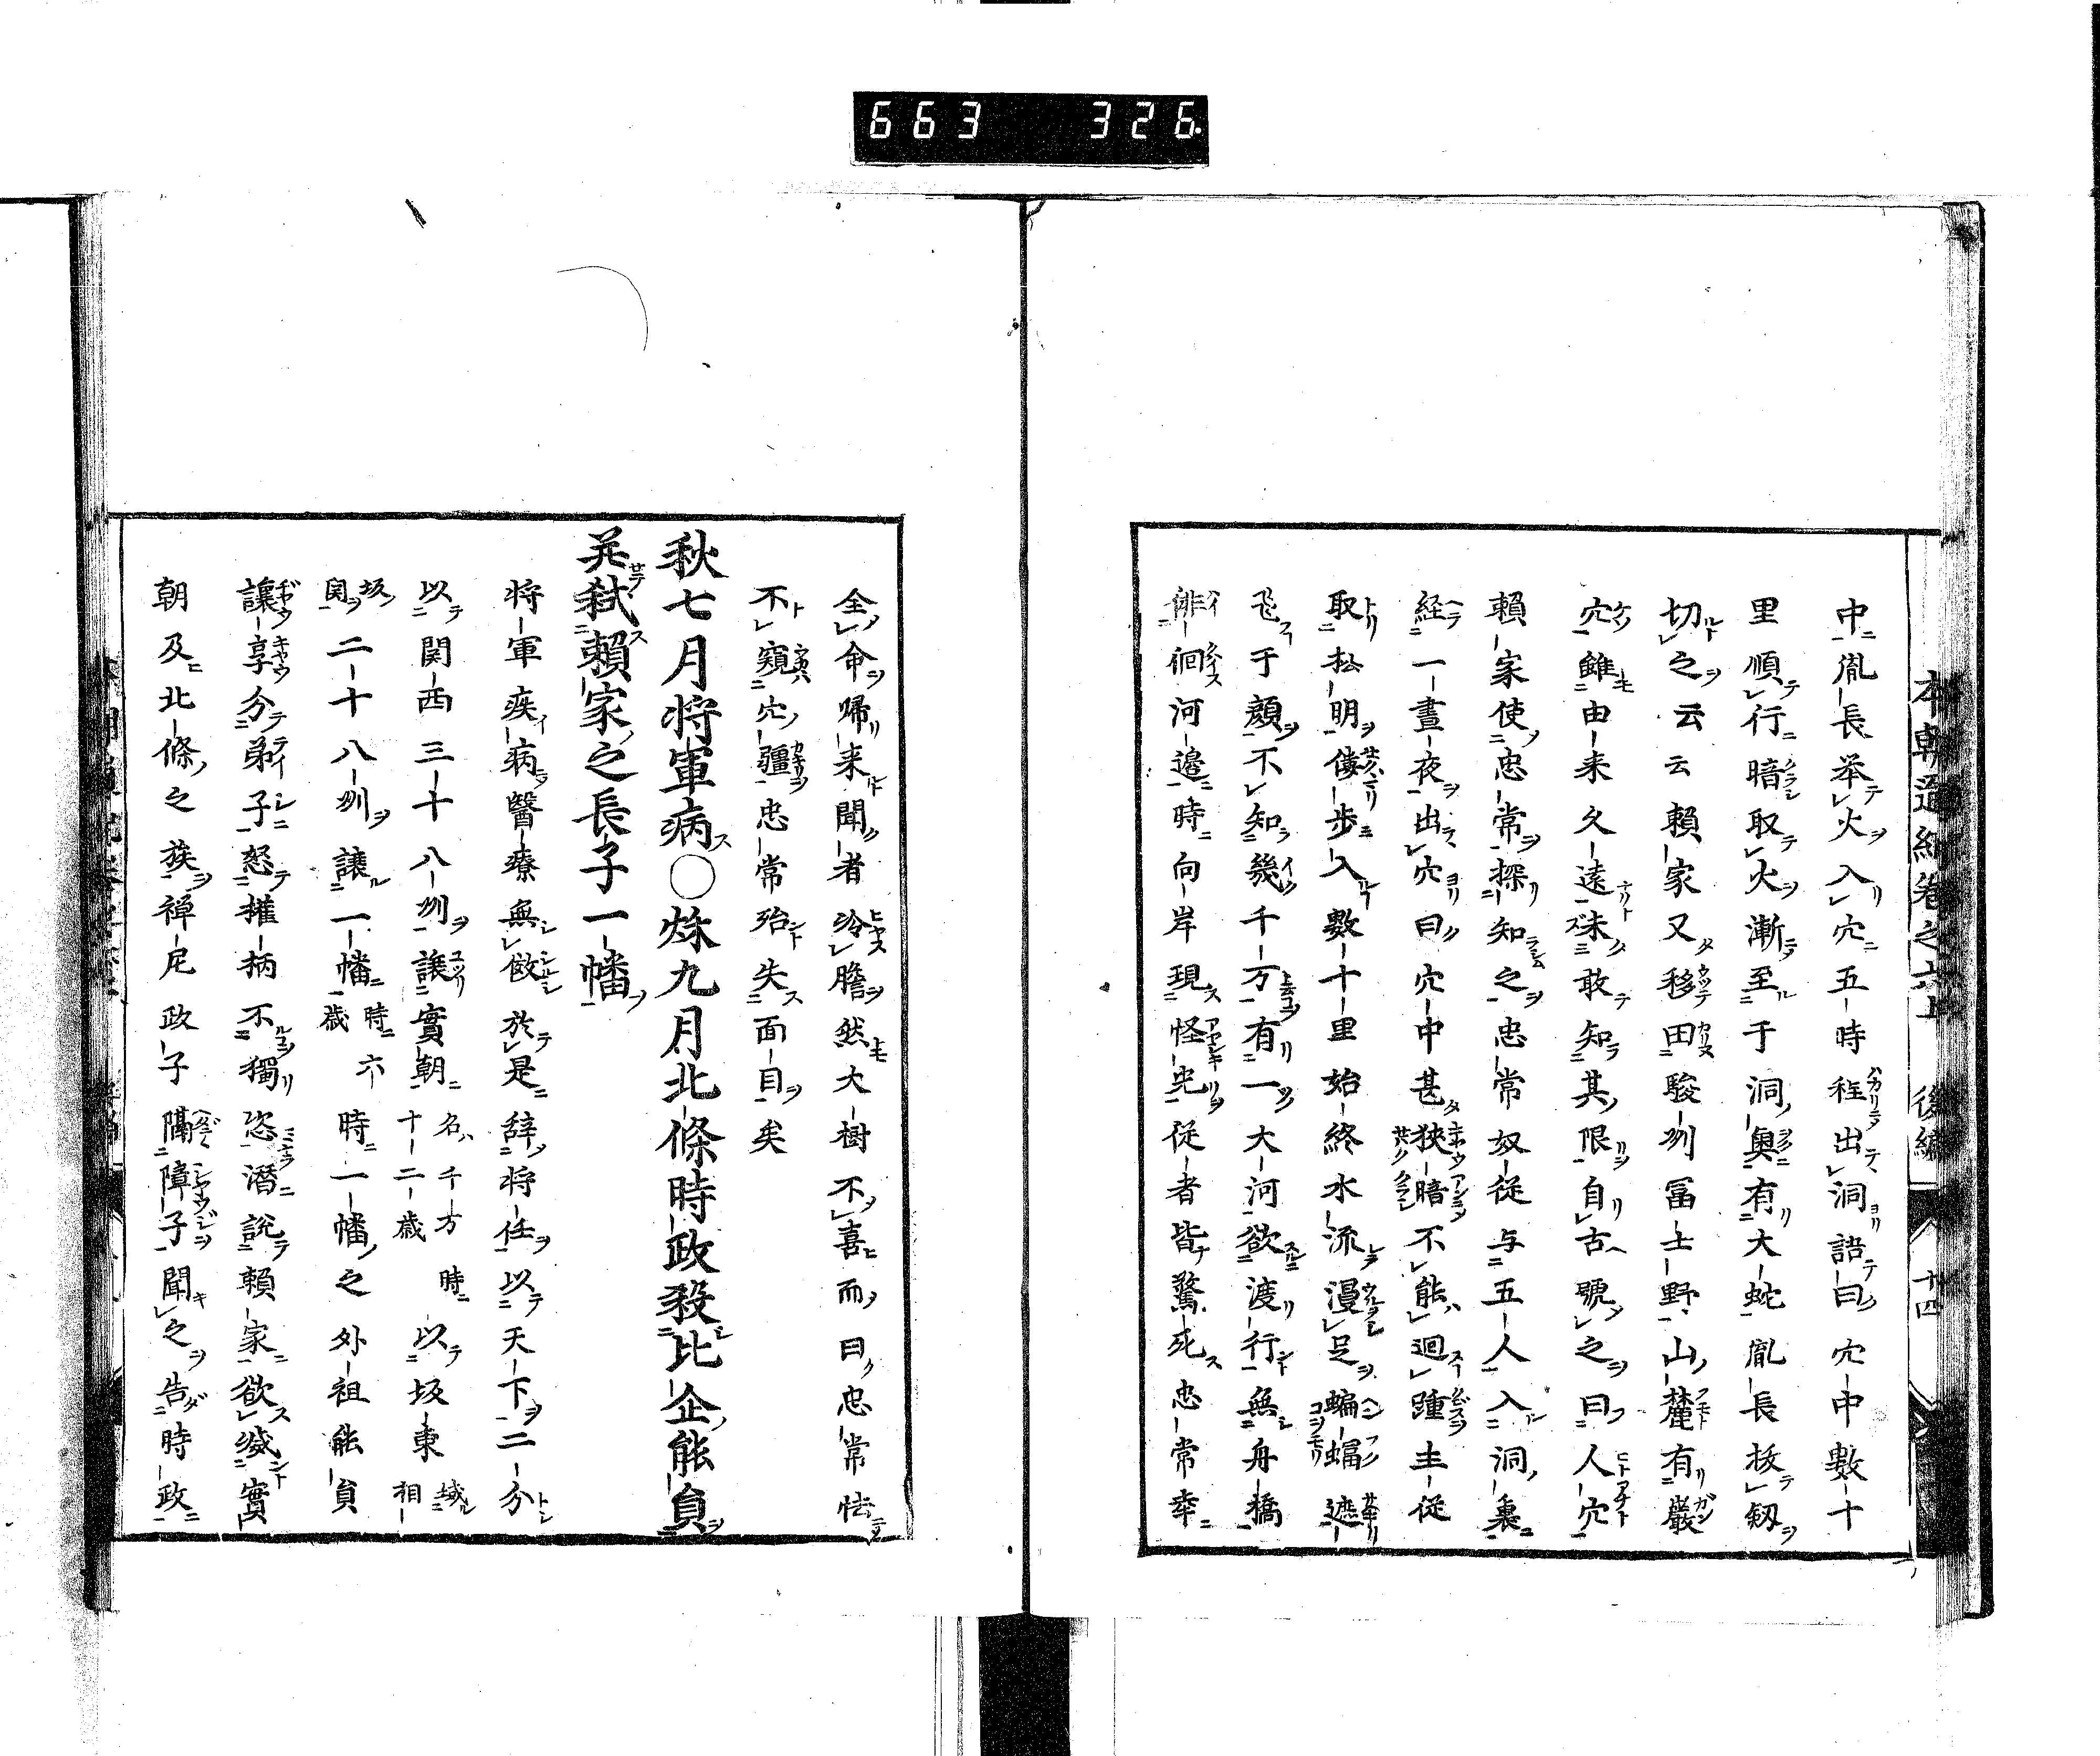 663 326
本朝通紀巻之六上 後編 十四
中胤長举火入穴五時程出洞語曰穴中數十
里順行暗取火漸至于洞奥有大蛇胤長抜劔
切之云云賴家又移田駿刕冨士野山麓有巖
穴雖由来久遠未敢知其限自古號之曰人穴
賴家使忠常探知之忠常奴従与五人入洞裏
経一晝夜出穴曰穴中甚狹暗不能廻踵主従
取松明僂歩入數十里始終水流漫足蝙蝠遮
飛于顔不知幾千万有一大河欲渡行無舟橋
徘徊河邉時向岸現怪光従者皆驚死忠常幸
全命歸来聞者冷膽然大樹不喜而曰忠常怯
不窺穴疆忠常殆失面目矣
秋七月将軍病〇秌九月北條時政殺比企能貟
并弑賴家之長子一幡
将軍疾病醫療無㓛於是辞将任以天下二分
以関西三十八刕譲實朝名千万時十二歳以坂東相坂関二十八刕譲一幡時六歳時一幡之外祖能貟
讓享分弟子怒摧柄不獨恣潛説賴家欲滅實
朝及北條之族禅尼政子隔障子聞之告時政